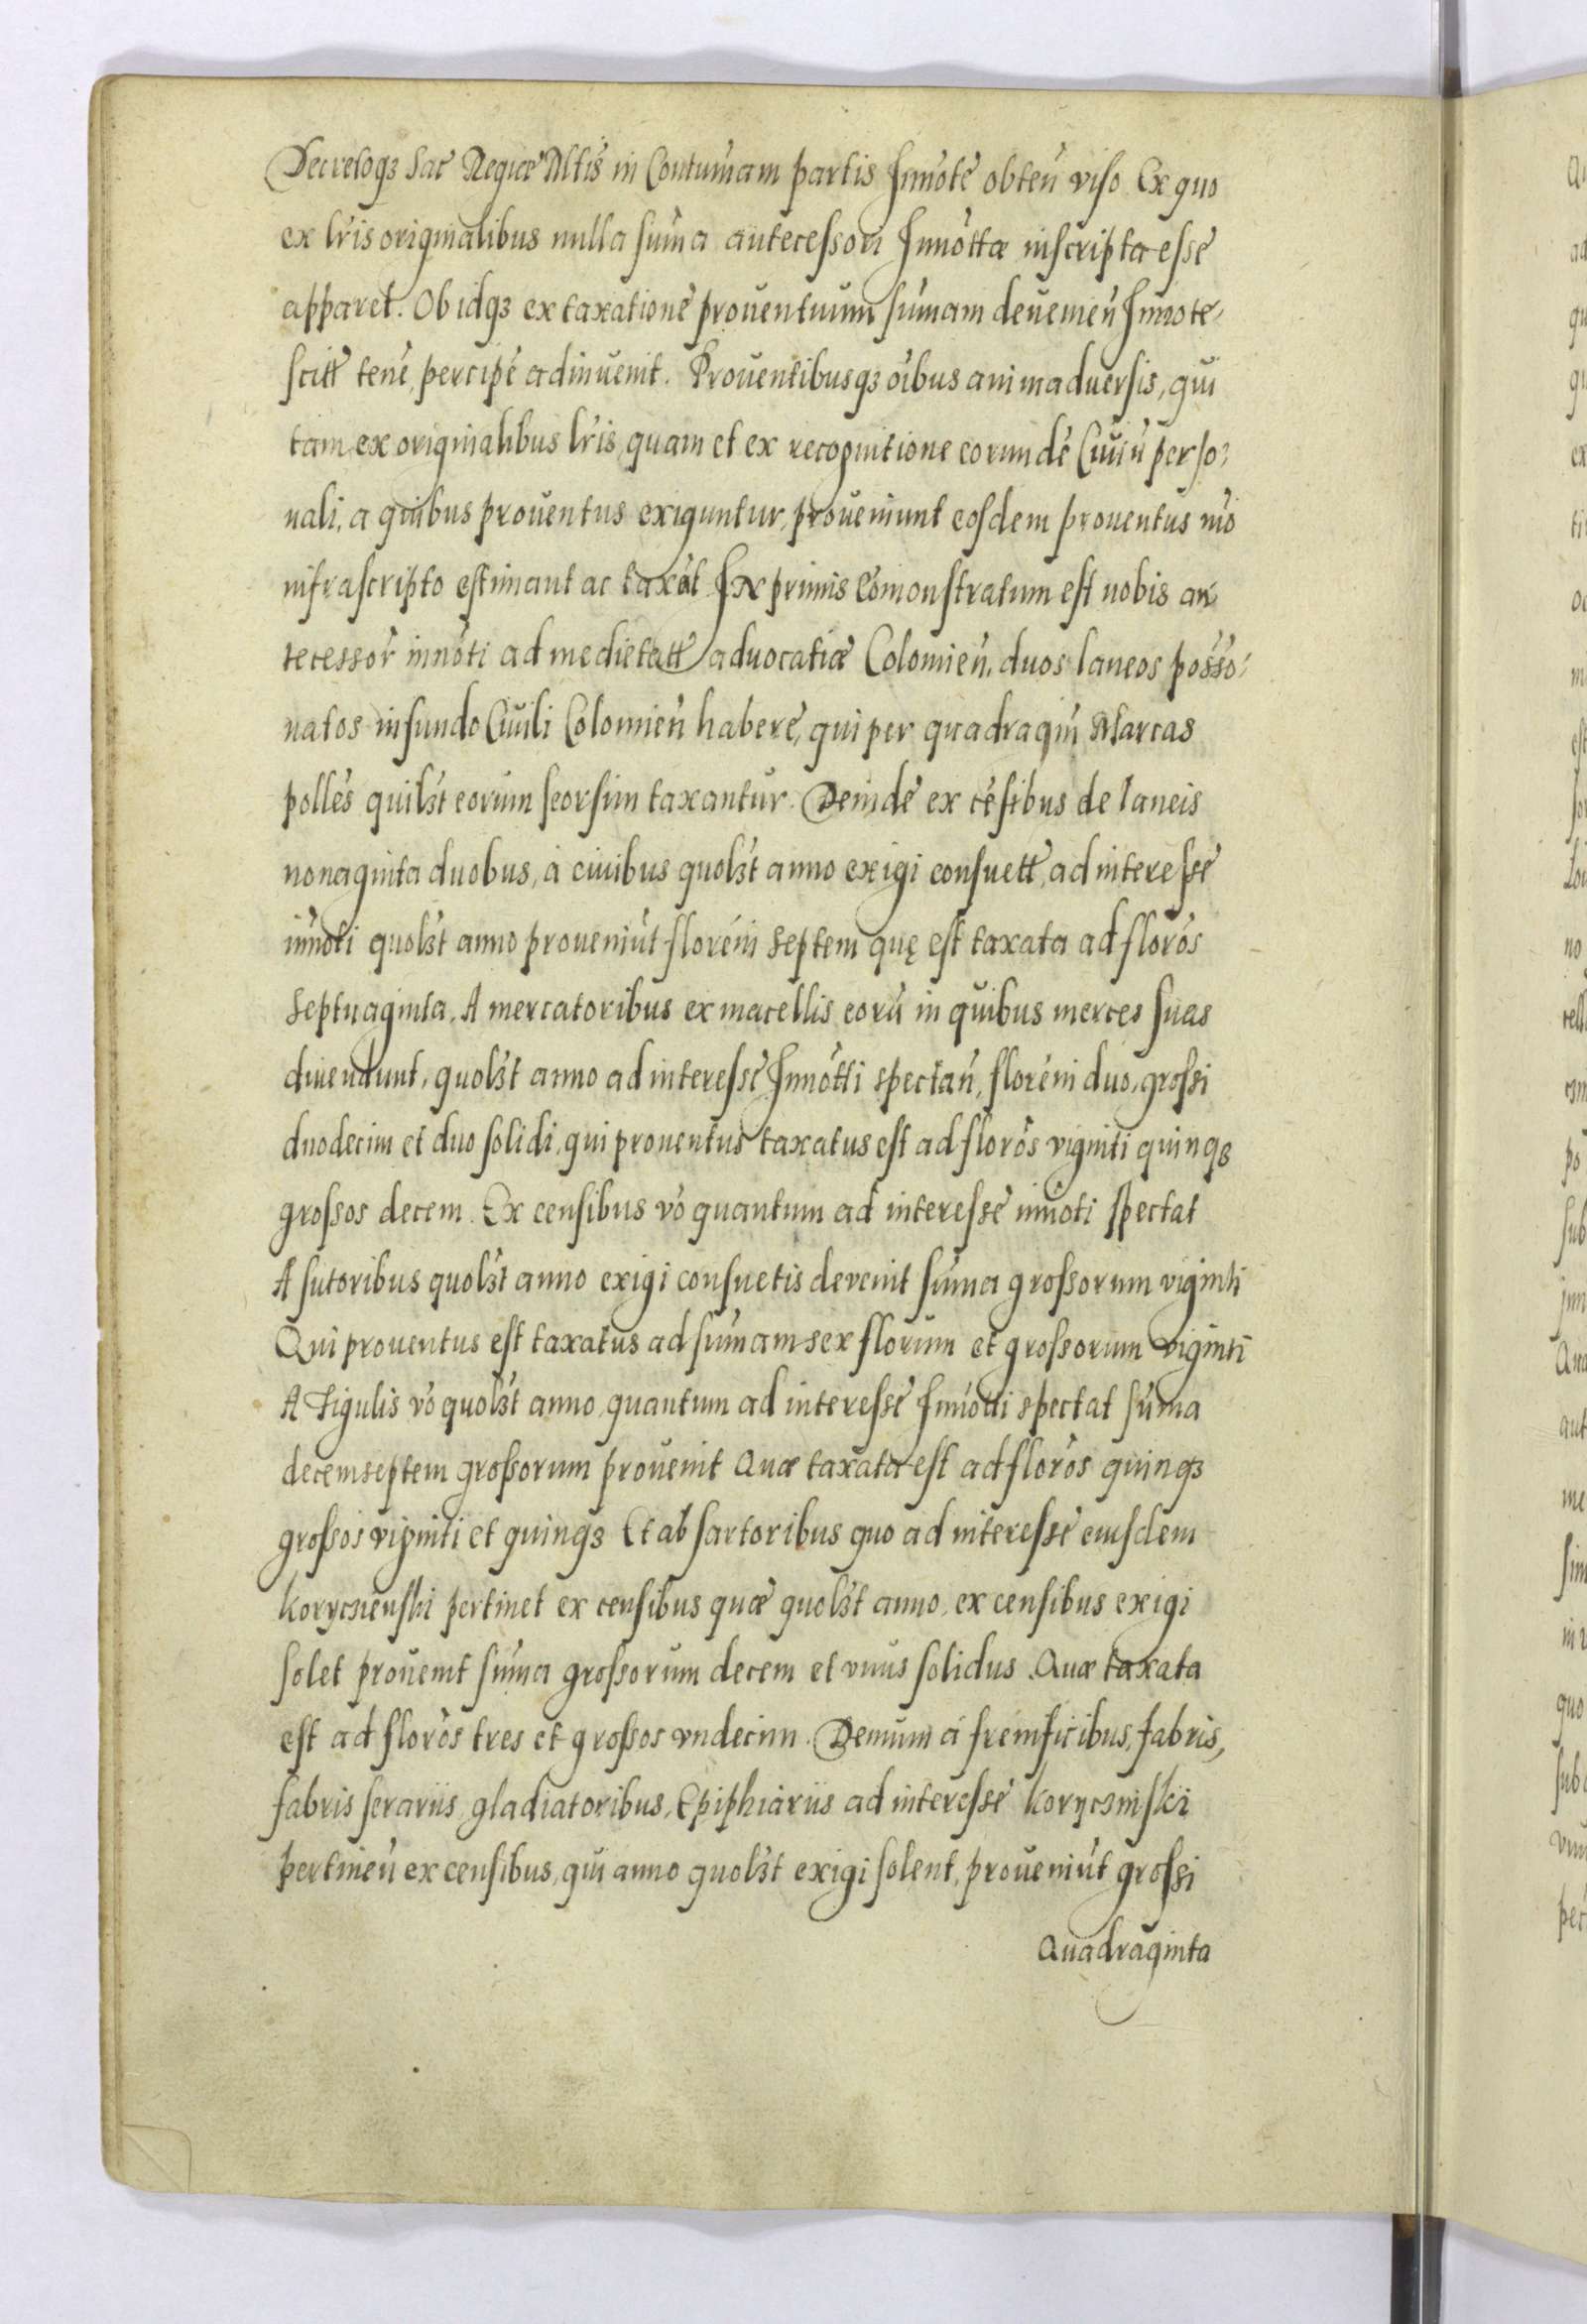 Decretoq3 Sac Regiæ Mtis in Contumam partis Jnnote obten viso Ex quo
ex lris originalibus nulla suma antecessori Jnnottæ inscripta esse
apparet. Ob idq3 ex taxatione prouentuum sumam deuenien Jnnote
scitt tene, percipe adinuenit. Prouentibusq3 oibus animaduersis, qui
tam ex originalibus lris, quam et ex recognitione eorunde Ciuiu perso:
nali, a quibus prouentus exiguntur, proueniunt eosdem prouentus mo
infrascripto estimant ac taxat Jn primis comonstratum est nobis an
tecessor innoti ad medietatt aduocatiæ Colomien. duos laneos posso:
natos in fundo Ciuili Colomien habere, qui per quadragin Marcas
polles quil3t eorum seorsim taxantur. Deinde ex cesibus de laneis
nonaginta duobus, a ciuibus quol3t anno exigi consuett, ad interesse
innoti quol3t anno proueniut floreni septem quę est taxata ad floros
septuaginta, A mercatoribus ex macellis eoru in quibus merces suas
diuendunt, quol3t anno ad interesse Jnnotti spectan, floreni duo, grossi
duodecim et duo solidi, qui prouentus taxatus est ad floros viginti quinq3
grossos decem. Ex censibus vo quantum ad interesse innoti spectat
A sutoribus quol3t anno exigi consuetis devenit suma grossorum viginti
Qui prouentus est taxatus ad sumam sex florum et grossorum viginti
A figulis vo quol3t anno, quantum ad interesse Jnnotti spectat suma
decemseptem grossorum prouenit Quæ taxata est ad floros quinq3
grossos viginti et quinq3 Et ab sartoribus quo ad interesse eiusdem
Koryczienski pertinet ex censibus quæ quol3t anno, ex censibus exigi
solet prouenit suma grossorum decem et vnus solidus. Quæ taxata
est ad floros tres et grossos vndecim. Demum a frenificibus, fabris,
fabris serariis gladiatoribus, Epiphiariis ad interesse Koryczinskii
pertinen ex censibus, qui anno quol3t exigi solent, proueniut grossi
Quadraginta